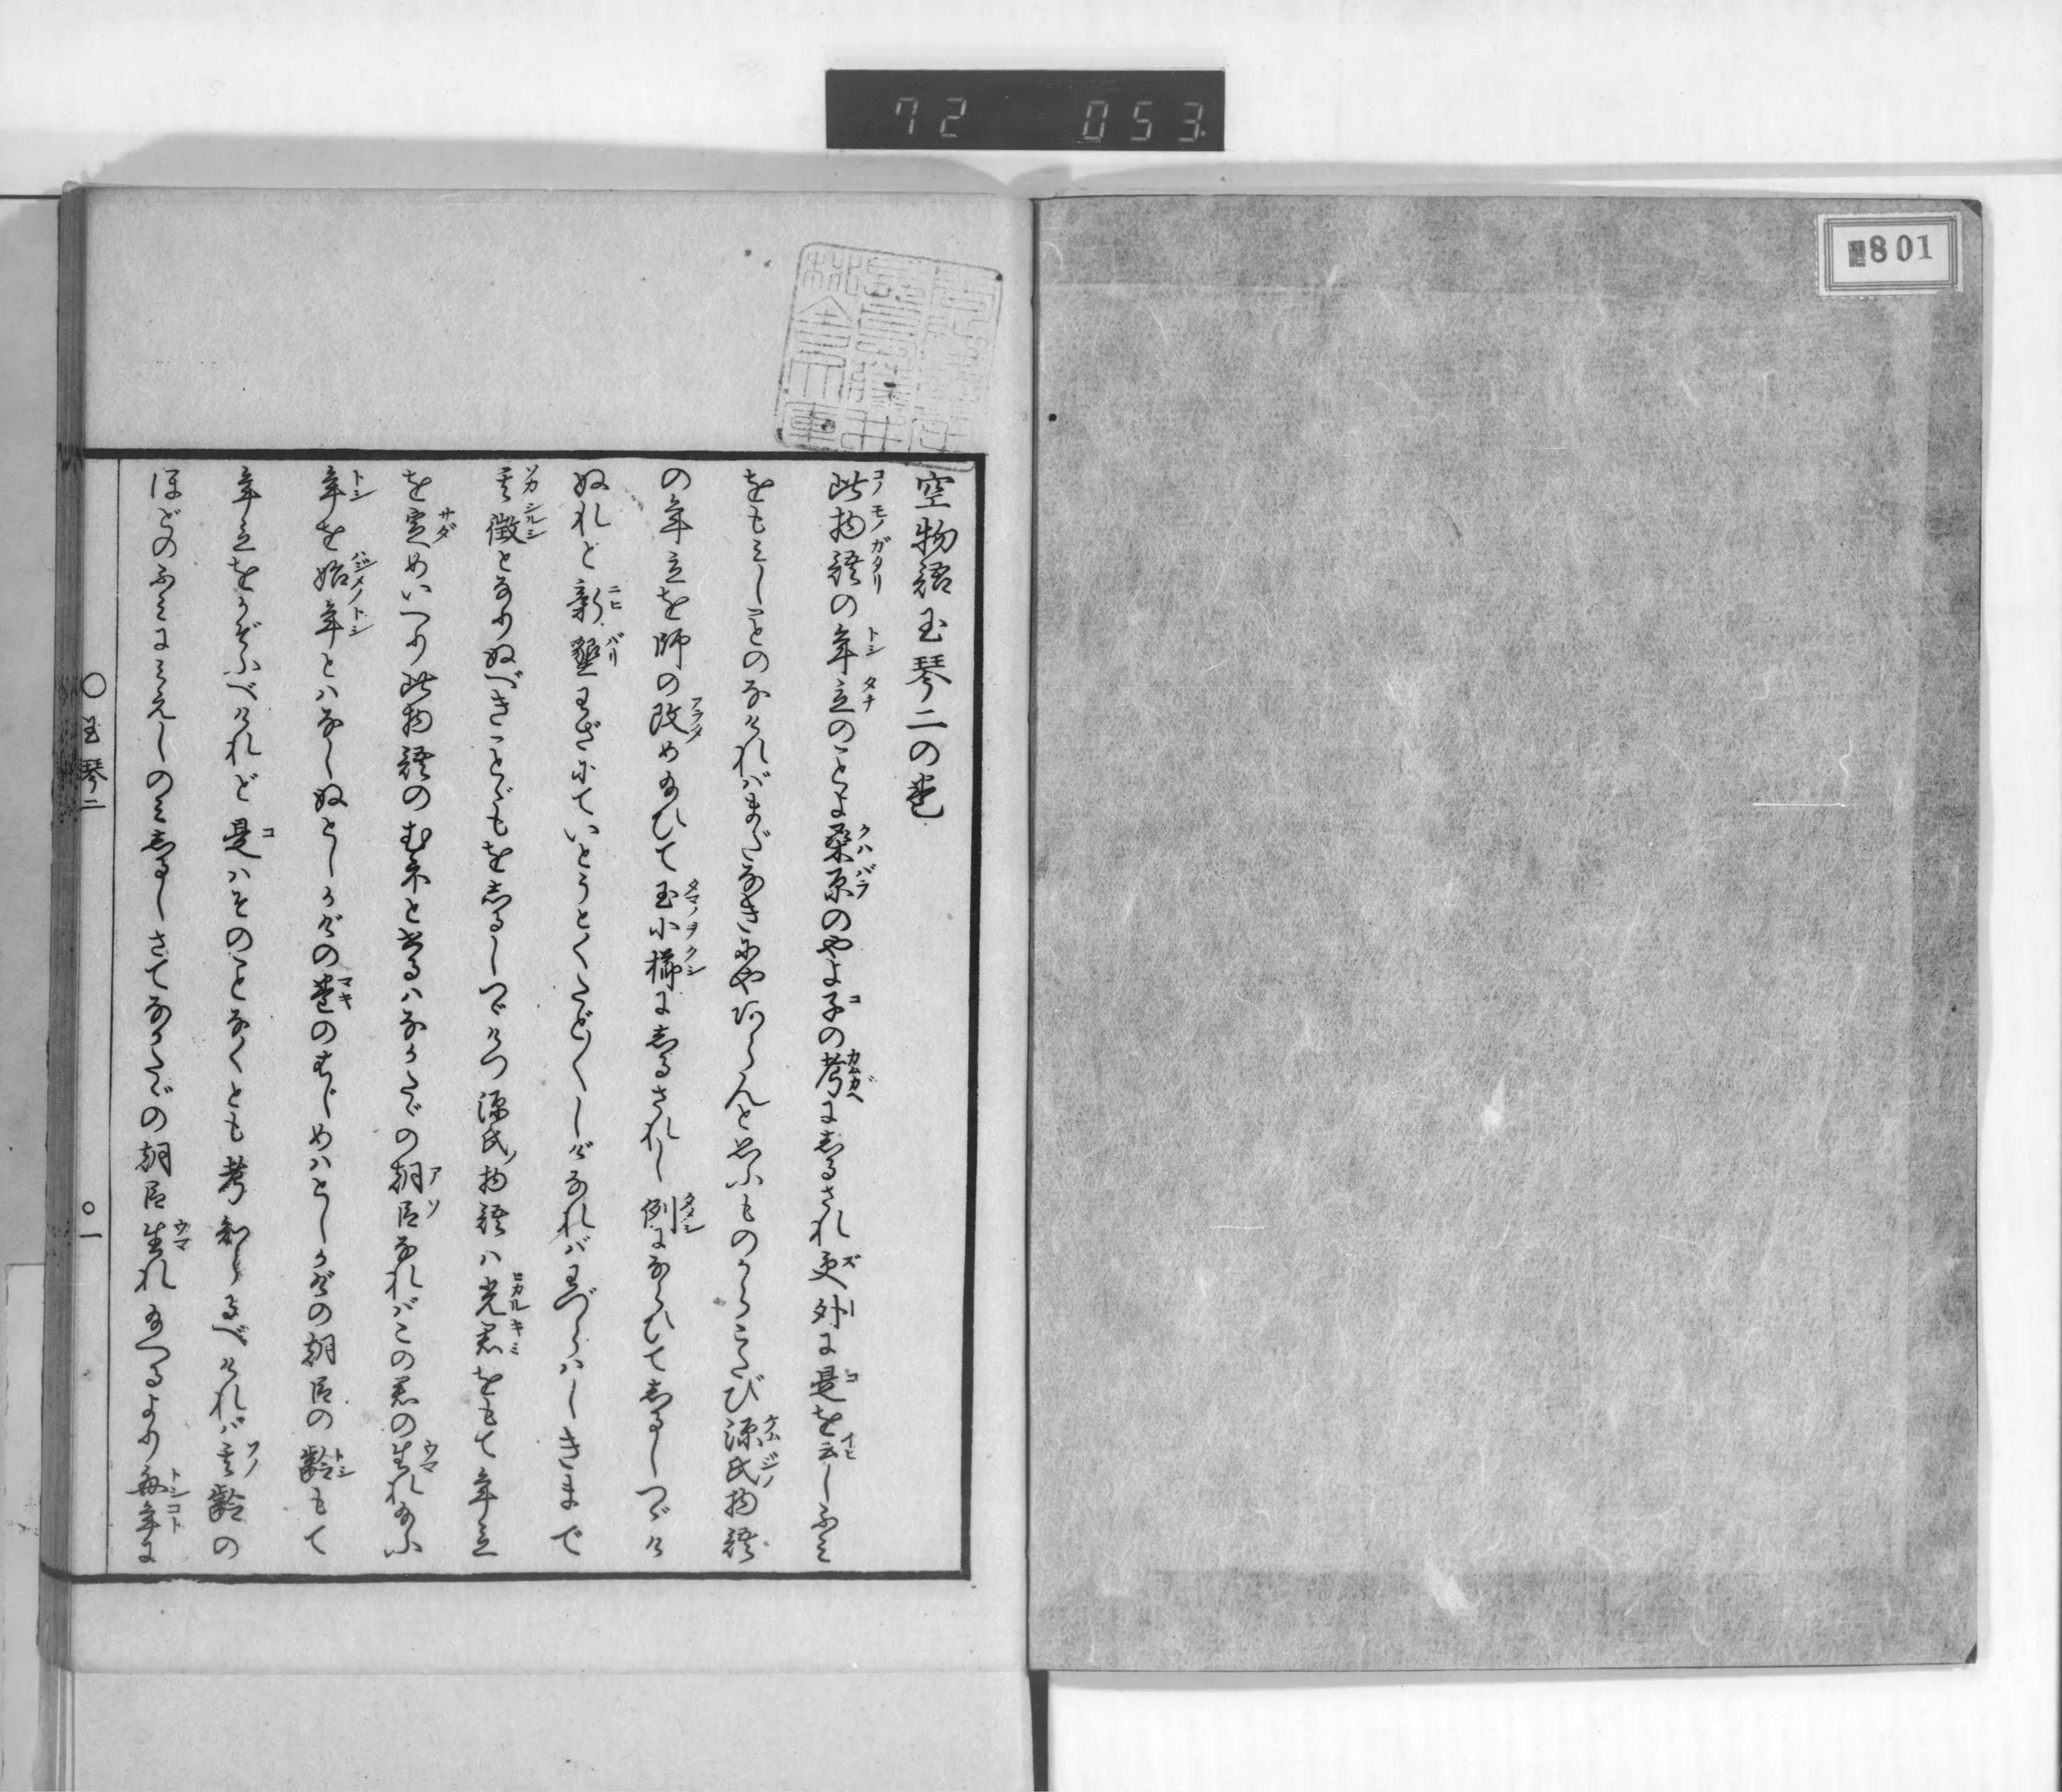 72 053
801
空物語玉琴二の巻
此物語の年立のことよ桑原のやよ子の考にしるされ又外に是を云しふみ
をもミしことのなけれバまだなきにやあらんと思ふものからこたび源氏物語
の年立を師の改め給ひて玉小櫛にしるされし例にならひてしるしつけ
ぬれど新墾わざにていとうとくたど〱しげなれバわづらハしきまで
其徴となりぬべきことゞもをしるしつけつ源氏ノ物語ハ光君をもて年立
を定めいへり此物語のむねと有るハなかたゞの朝臣なれバこの君の生れ給ふ
年を始年とハなしぬとしかげの巻のはじめハとしかげの朝臣の齢もて
年立をかぞふべけれど是ハそのことなくとも考知らるべけれバ其齢の
ほどのふミにミえしのミしるしさてなかたゞの朝臣生れ給へるより毎年に
○玉琴二 ○一